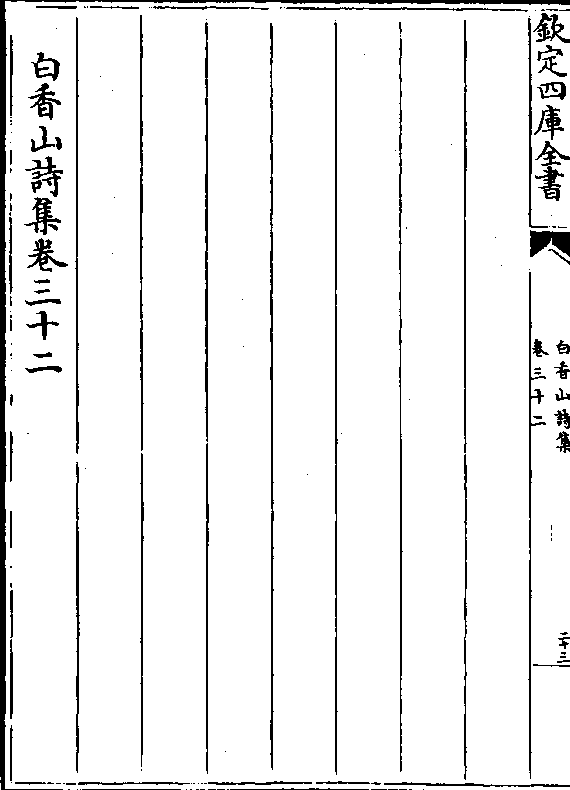 欽定四庫全書
白香山詩集
卷三十二
二十三
白香山詩集卷三十二